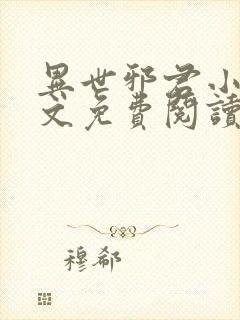 異世邪君小
文免費閱讀
穆郗